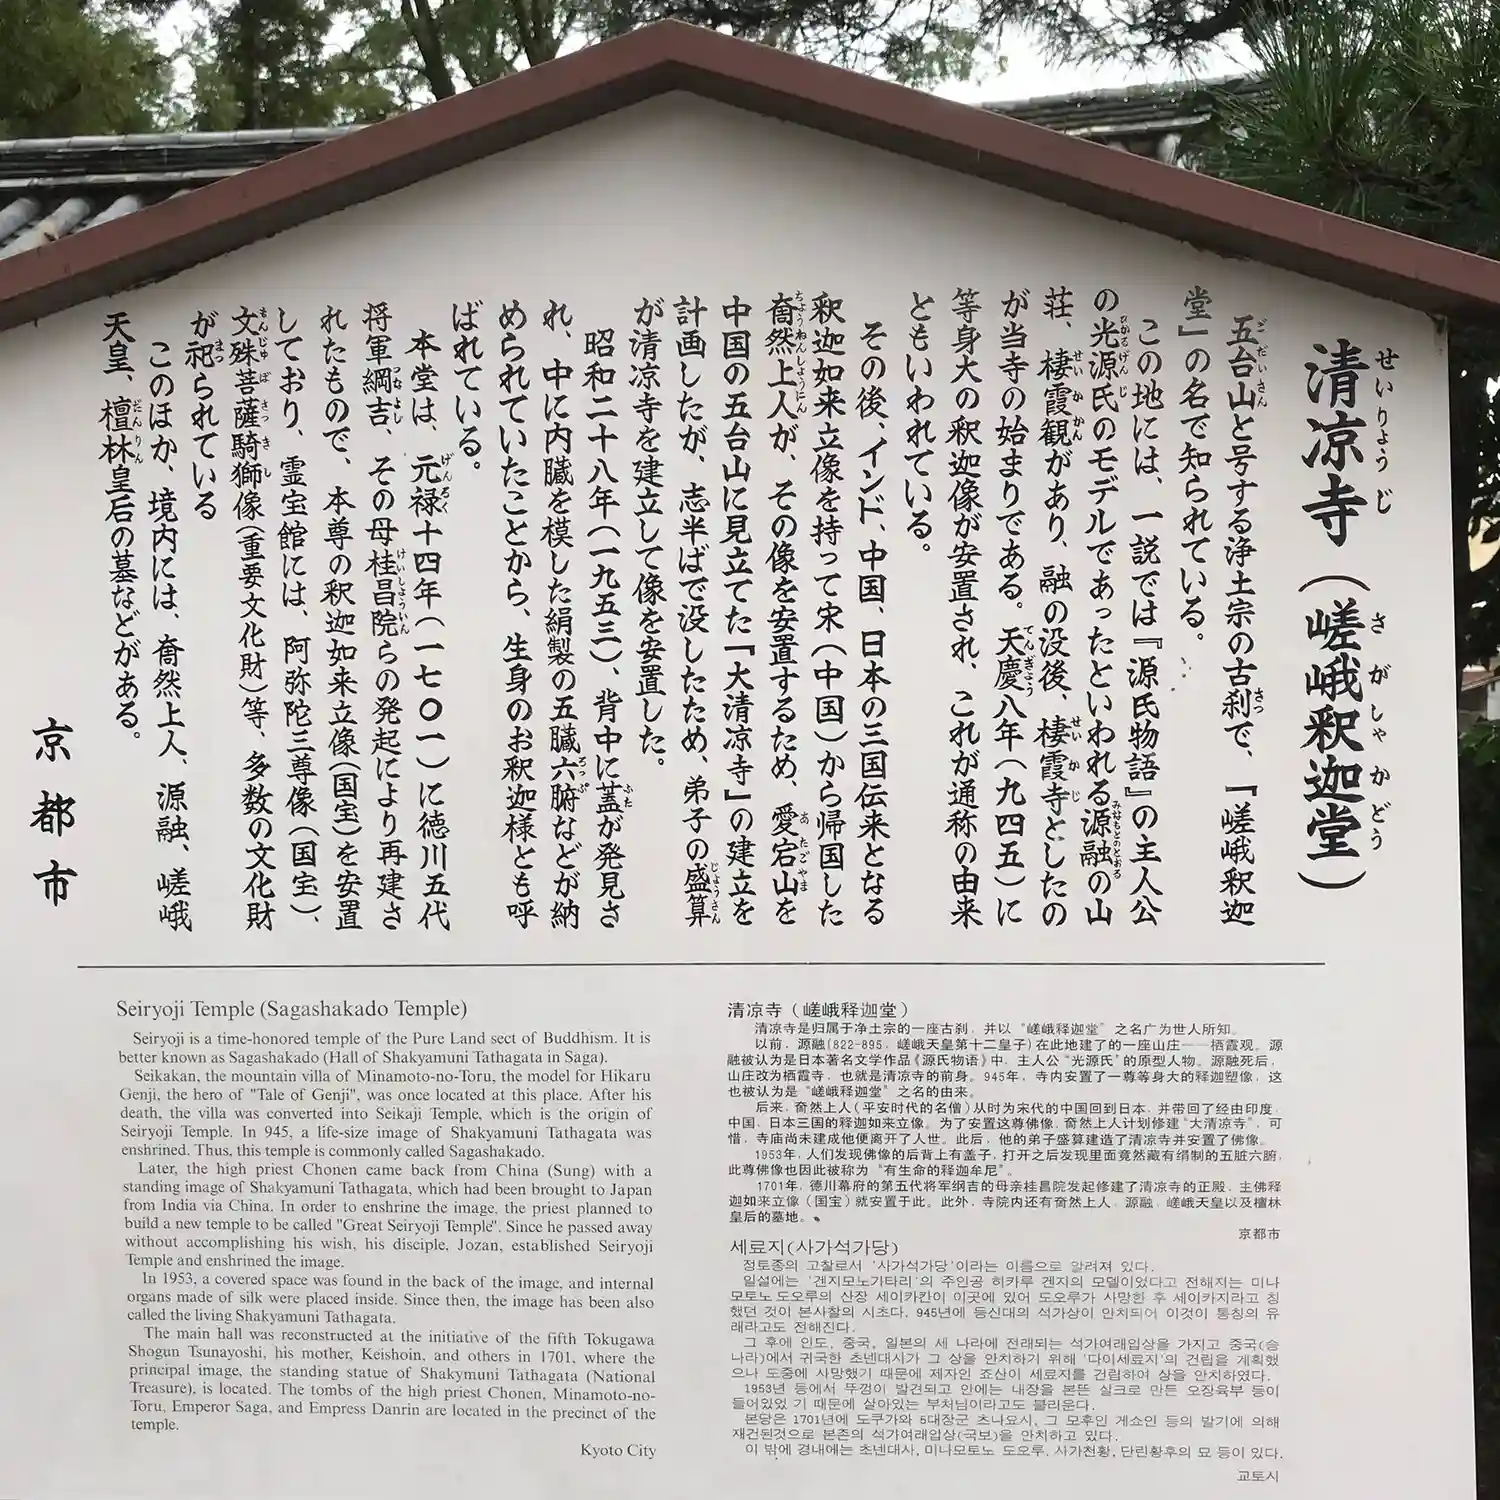 清凉寺（嵯峨釈迦堂）
五台山と号する浄土宗の古刹で、『嵯峨釈迦
堂』の名で知られている。
この地には、一説では『源氏物語』の主人公
の光源氏のモデルであったといわれる源融の山
荘、棲霞観があり、融の没後、棲霞寺としたの
が当寺の始まりである。天慶八年（九四五）に
等身大の釈迦像が安置され、これが通称の由来
ともいわれている。
その後、インド、中国、日本の三国伝来となる
釈迦如来立像を持って宋（中国）から帰国した
奝然上人が、その像を安置するため、愛宕山を
中国の五台山に見立てた『大清凉寺』の建立を
計画したが、志半ばで没したため、弟子の盛算
が清凉寺を建立して像を安置した。
昭和二十八年（一九五三）、背中に蓋が発見さ
れ、中に内臓を模した絹製の五臓六腑などが納
められていたことから、生身のお釈迦様とも呼
ばれている。
本堂は、元禄十四年（一七〇一）に徳川五代
将軍綱吉、その母桂昌院らの発起により再建さ
れたもので、本尊の釈迦如来立像（国宝）を安置
しており、霊宝館には、阿弥陀三尊像（国宝）、
文殊菩薩騎獅像（重要文化財）等、多数の文化財
が祀られている
このほか、境内には、奝然上人、源融、嵯峨
天皇、檀林皇后の墓などがある。
京都市
Seiryoji Temple (Sagashakado Temple)
Seiryoji is a time-honored temple of the Pure Land sect of Buddhism. It is
better known as Sagashakado (Hall of Shakyamuni Tathagata in Saga).
Seikakan, the mountain villa of Minamoto-no-Toru, the model for Hikaru
Genji, the hero of "Tale of Genji", was once located at this place. After his
death, the villa was converted into Seikaji Temple, which is the origin of
Seiryoji Temple. In 945, a life-size image of Shakyamuni Tathagata was
enshrined. Thus, this temple is commonly called Sagashakado.
Later, the high priest Chonen came back from China (Sung) with a
standing image of Shakyamuni Tathagata, which had been brought to Japan
from India via China. In order to enshrine the image, the priest planned to
build a new temple to be called "Great Seiryoji Temple". Since he passed away
without accomplishing his wish, his disciple, Jozan, established Seiryoji
Temple and enshrined the image.
In 1953, a covered space was found in the back of the image, and internal
organs made of silk were placed inside. Since then, the image has been also
called the living Shakyamuni Tathagata.
The main hall was reconstructed at the initiative of the fifth Tokugawa
Shogun Tsunayoshi, his mother, Keishoin, and others in 1701, where the
principal image, the standing statue of Shakymuni Tathagata (National
Treasure), is located. The tombs of the high priest Chonen, Minamoto-no-
Toru, Emperor Saga, and Empress Danrin are located in the precinct of the
temple.
Kyoto City
清凉寺（嵯峨释迦堂）
清凉寺是归属于净土宗的一座古刹，并以“嵯峨释迦堂”之名广为世人所知。
以前，源融(822-895，嵯峨天皇第十二皇子)在此地建了的一座山庄——栖霞观。源
融被认为是日本著名文学作品《源氏物语》中，主人公“光源氏”的原型人物。源融死后，
山庄改为栖霞寺，也就是清凉寺的前身。945年，寺内安置了一尊等身大的释迦塑像，这
也被认为是“嵯峨释迦堂”之名的由来。
后来，奝然上人(平安时代的名僧)从时为宋代的中国回到日本，并带回了经由印度，
中国，日本三国的释迦如来立像。为了安置这尊佛像，奝然上人计划修建“大清凉寺”，可
惜，寺庙尚未建成他便离开了人世。此后，他的弟子盛算建造了清凉寺并安置了佛像。
1953年，人们发现佛像的后背上有盖子，打开之后发现里面竟然藏有绢制的五脏六腑，
此尊佛像也因此被称为“有生命的释迦牟尼”。
1701年，德川幕府的第五代将军纲吉的母亲桂昌院发起修建了清凉寺的正殿，主佛释
迦如来立像（国宝）就安置于此。此外，寺院内还有奝然上人，源融，嵯峨天皇以及檀林
皇后的墓地。
京都市
세료지(사가석가당)
정토종의 고찰로서 '사가석가당'이라는 이름으로 알려져 있다.
일설에는 '겐지모노가타리'의 주인공 히카루 겐지의 모델이었다고 전해지는 미나
모토노 도오루의 산장 세이카칸이 이곳에 있어 도오루가 사망한 후 세이카지라고 칭
했던 것이 본사찰의 시초다. 945년에 등신대의 석가상이 안치되어 이것이 통칭의 유
래라고도 전해진다.
그 후에 인도, 중국, 일본의 세 나라에 전래되는 석가여래입상을 가지고 중국(송
나라)에서 귀국한 초넨대사가 그 상을 안치하기 위해 '다이세료지'의 건립을 계획했
으나 도중에 사망했기 때문에 제자인 죠산이 세료지를 건립하여 상을 안치하였다.
1953년 등에서 뚜껑이 발견되고 안에는 내장을 본뜬 실크로 만든 오장육부 등이
들어있었 기 때문에 살아있는 부처님이라고도 불리운다.
본당은 1701년에 도쿠가와 5대장군 츠나요시, 그 모후인 게쇼인 등의 발기에 의해
재건된것으로 본존의 석가여래입상(국보)을 안치하고 있다.
이 밖에 경내에는 초넨대사, 미나모토노 도오루, 사가천황, 단린황후의 묘 등이 있다.
교토시